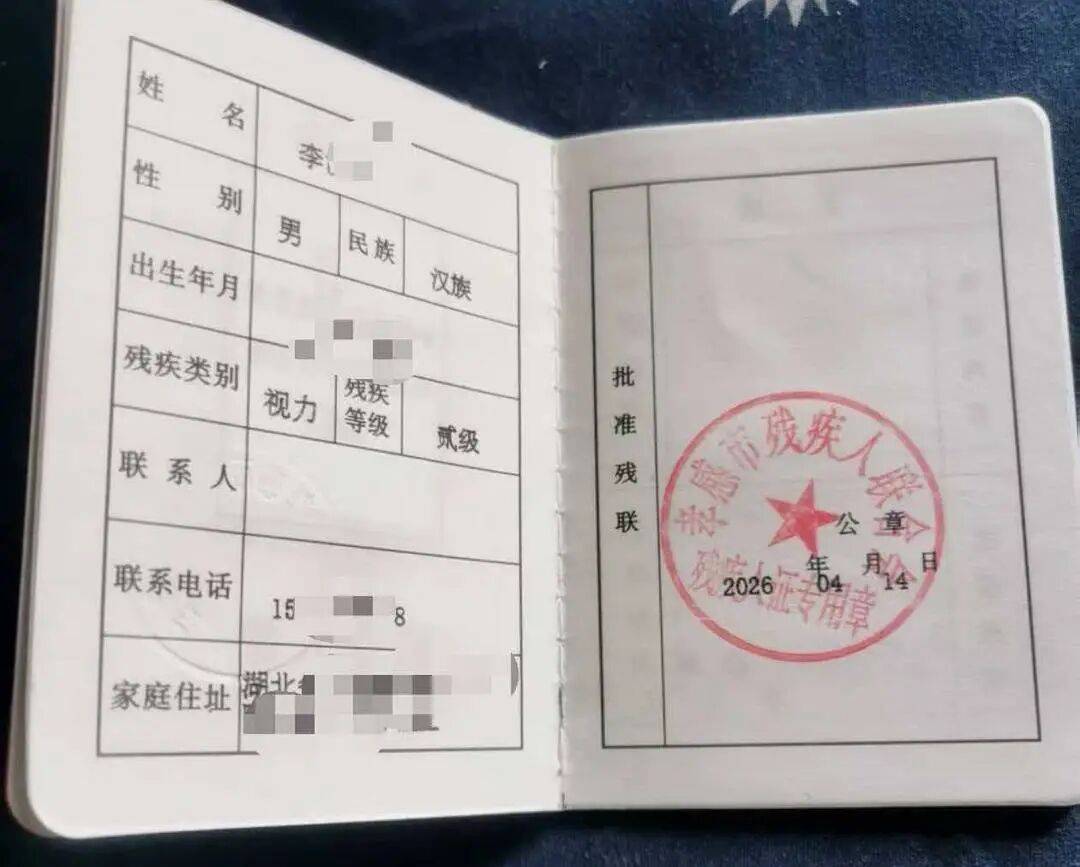 姓名 李
性别 男 民族 汉族
出生年月
残疾类别 视力 残疾等级 贰级
联系人
联系电话 15 8
家庭住址 湖北
批准残联
孝感市残疾人联合会
公章
年 月 日
2026 04 14
残疾人证专用章